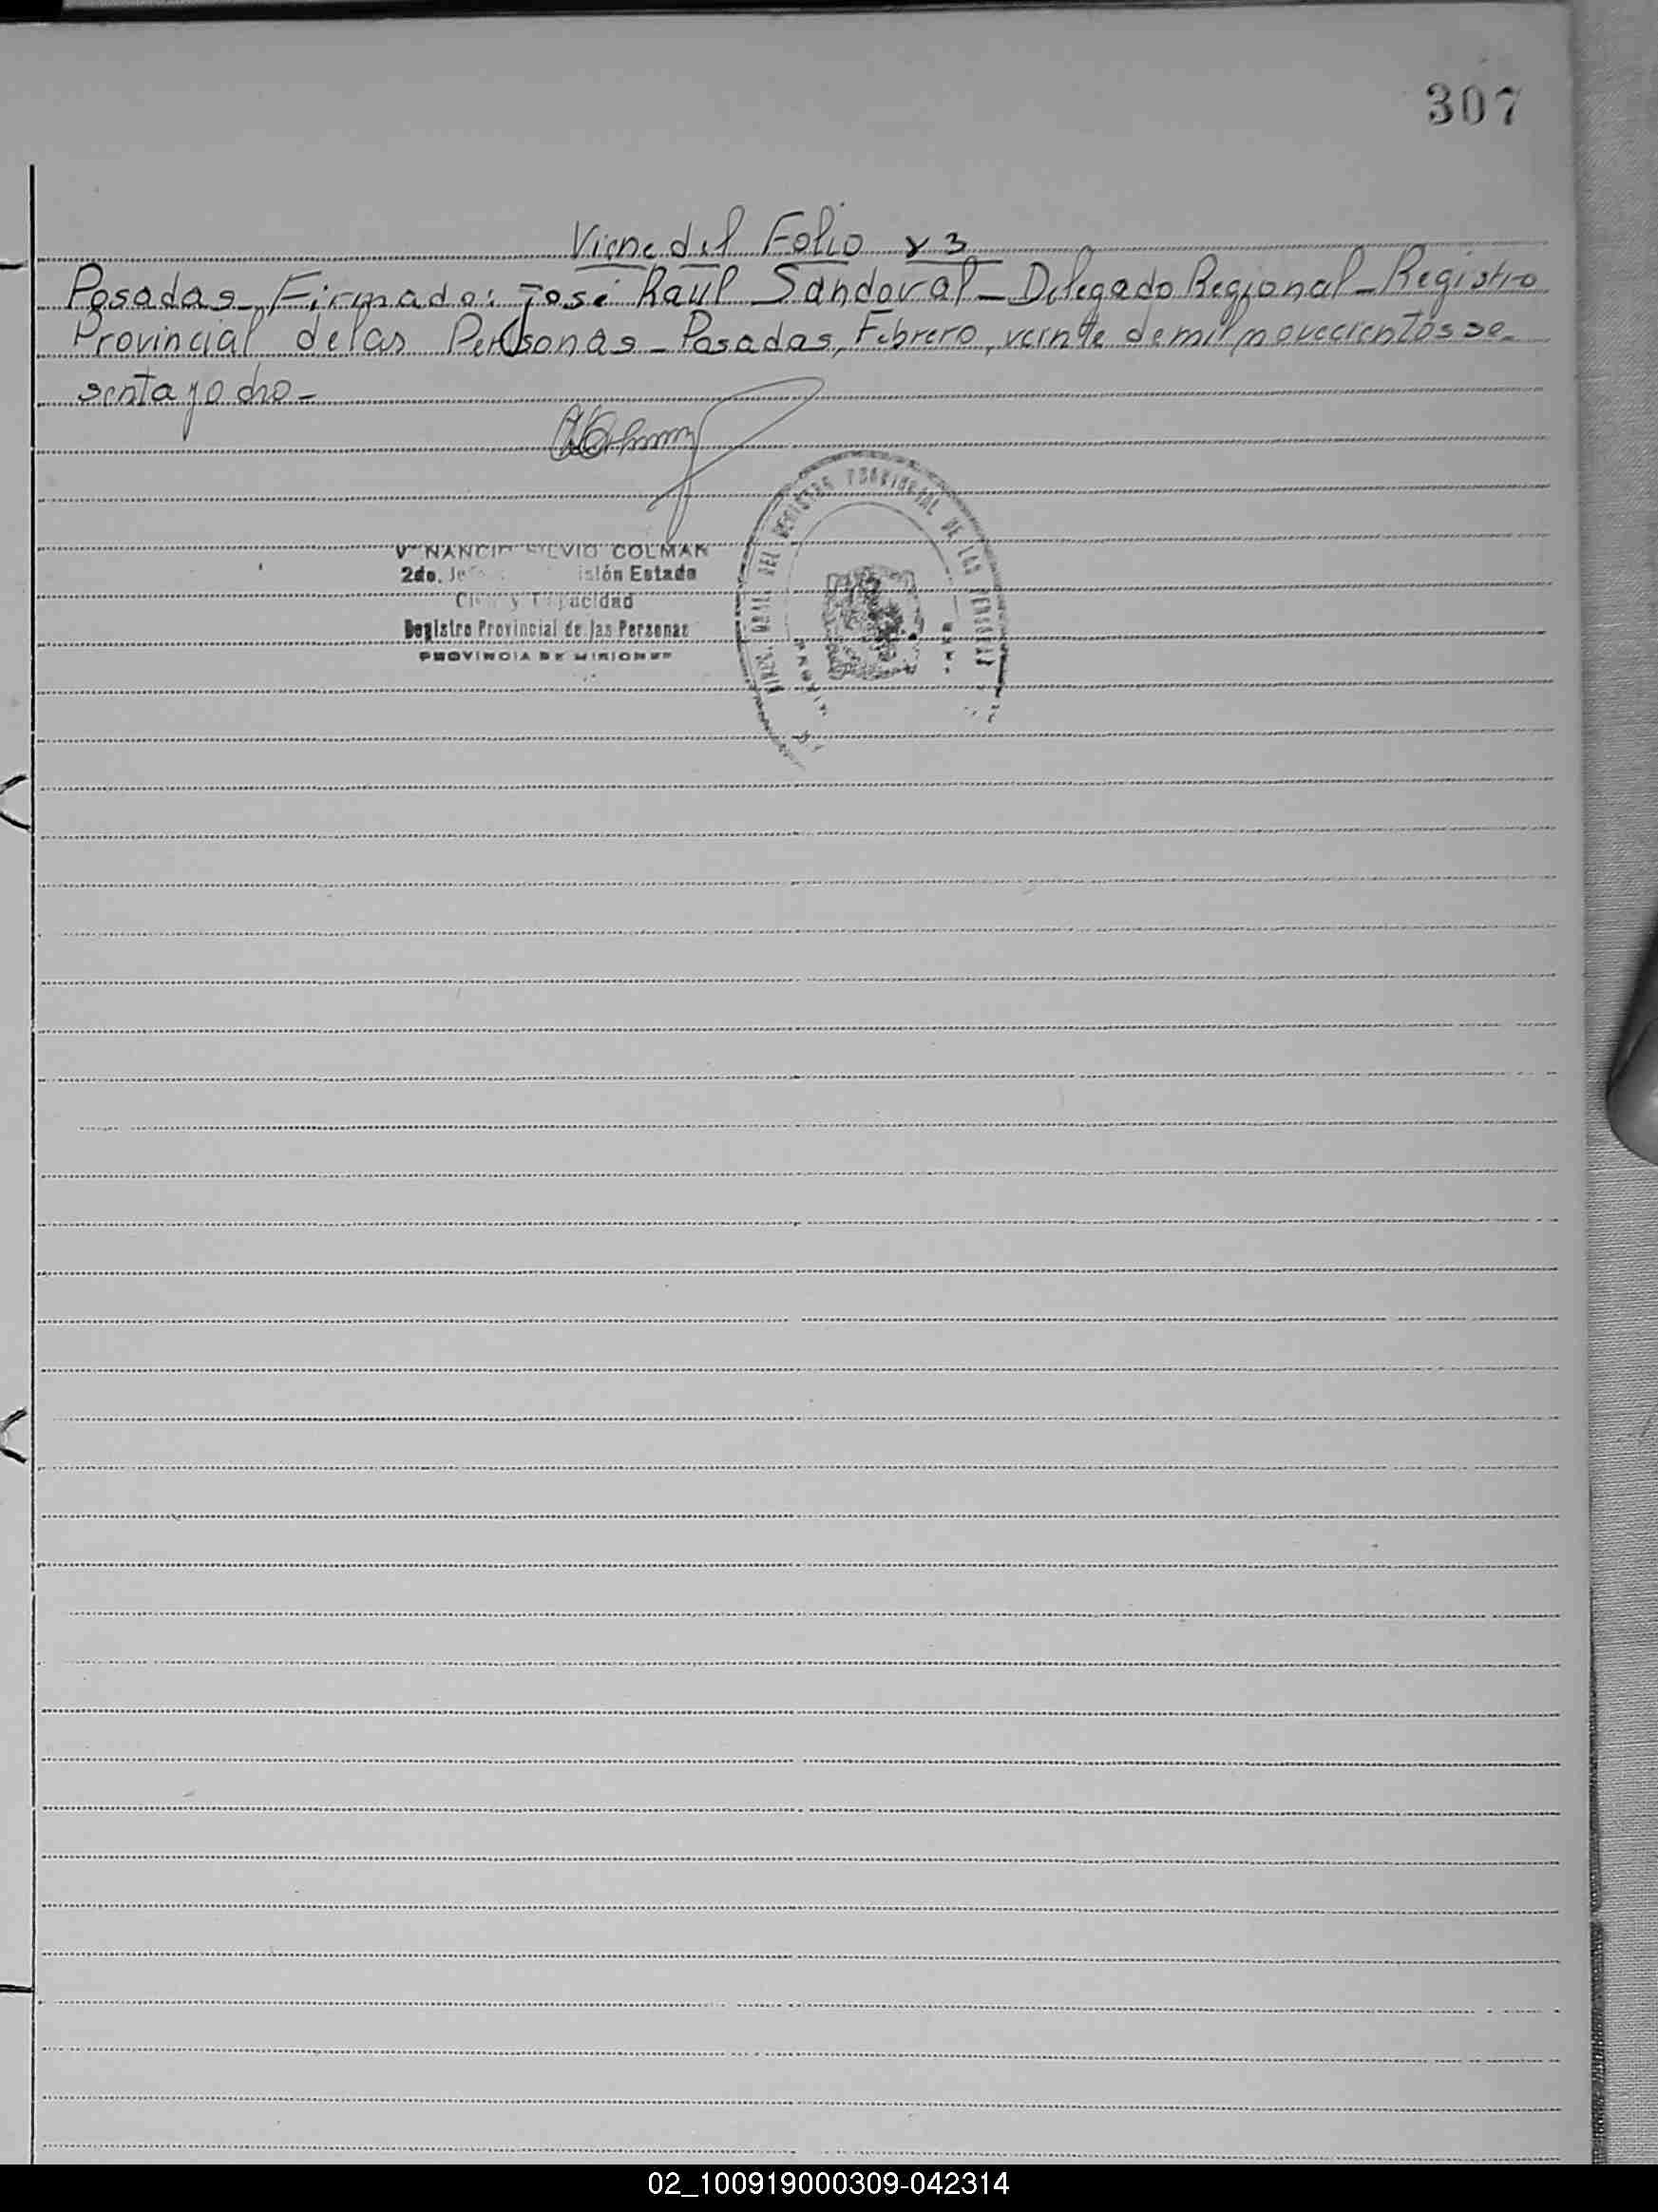 307
Viene del Folio 83
Posadas - Firmado: José Raúl Sandoval - Delegado Regional - Registro
Provincial de las Personas - Posadas, Febrero, veinte de mil novecientos se-
senta y ocho -
SILVIO COLMAN
2do. Estado
Civil y Capacidad
Registro Provincial de las Personas
PROVINCIA DE MISIONES
DEL REGISTRO PROVINCIAL DE LAS PERSONAS
02_100919000309-042314